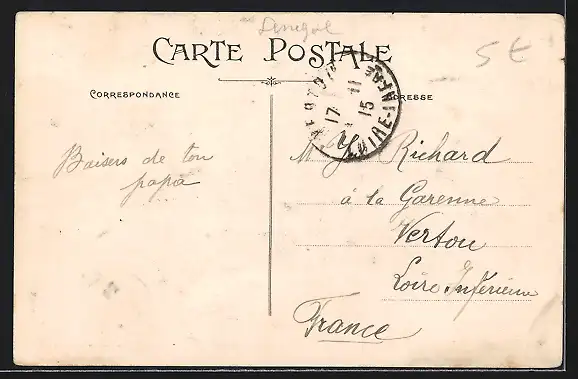 Senegal
CARTE POSTALE
5 €
CORRESPONDANCE
ADRESSE
VERTOU
17 - 11
15
LOIRE-INFRE
Baisers de ton
papa
M. Y. Richard
à la Garenne
Vertou
Loire Inférieure
France